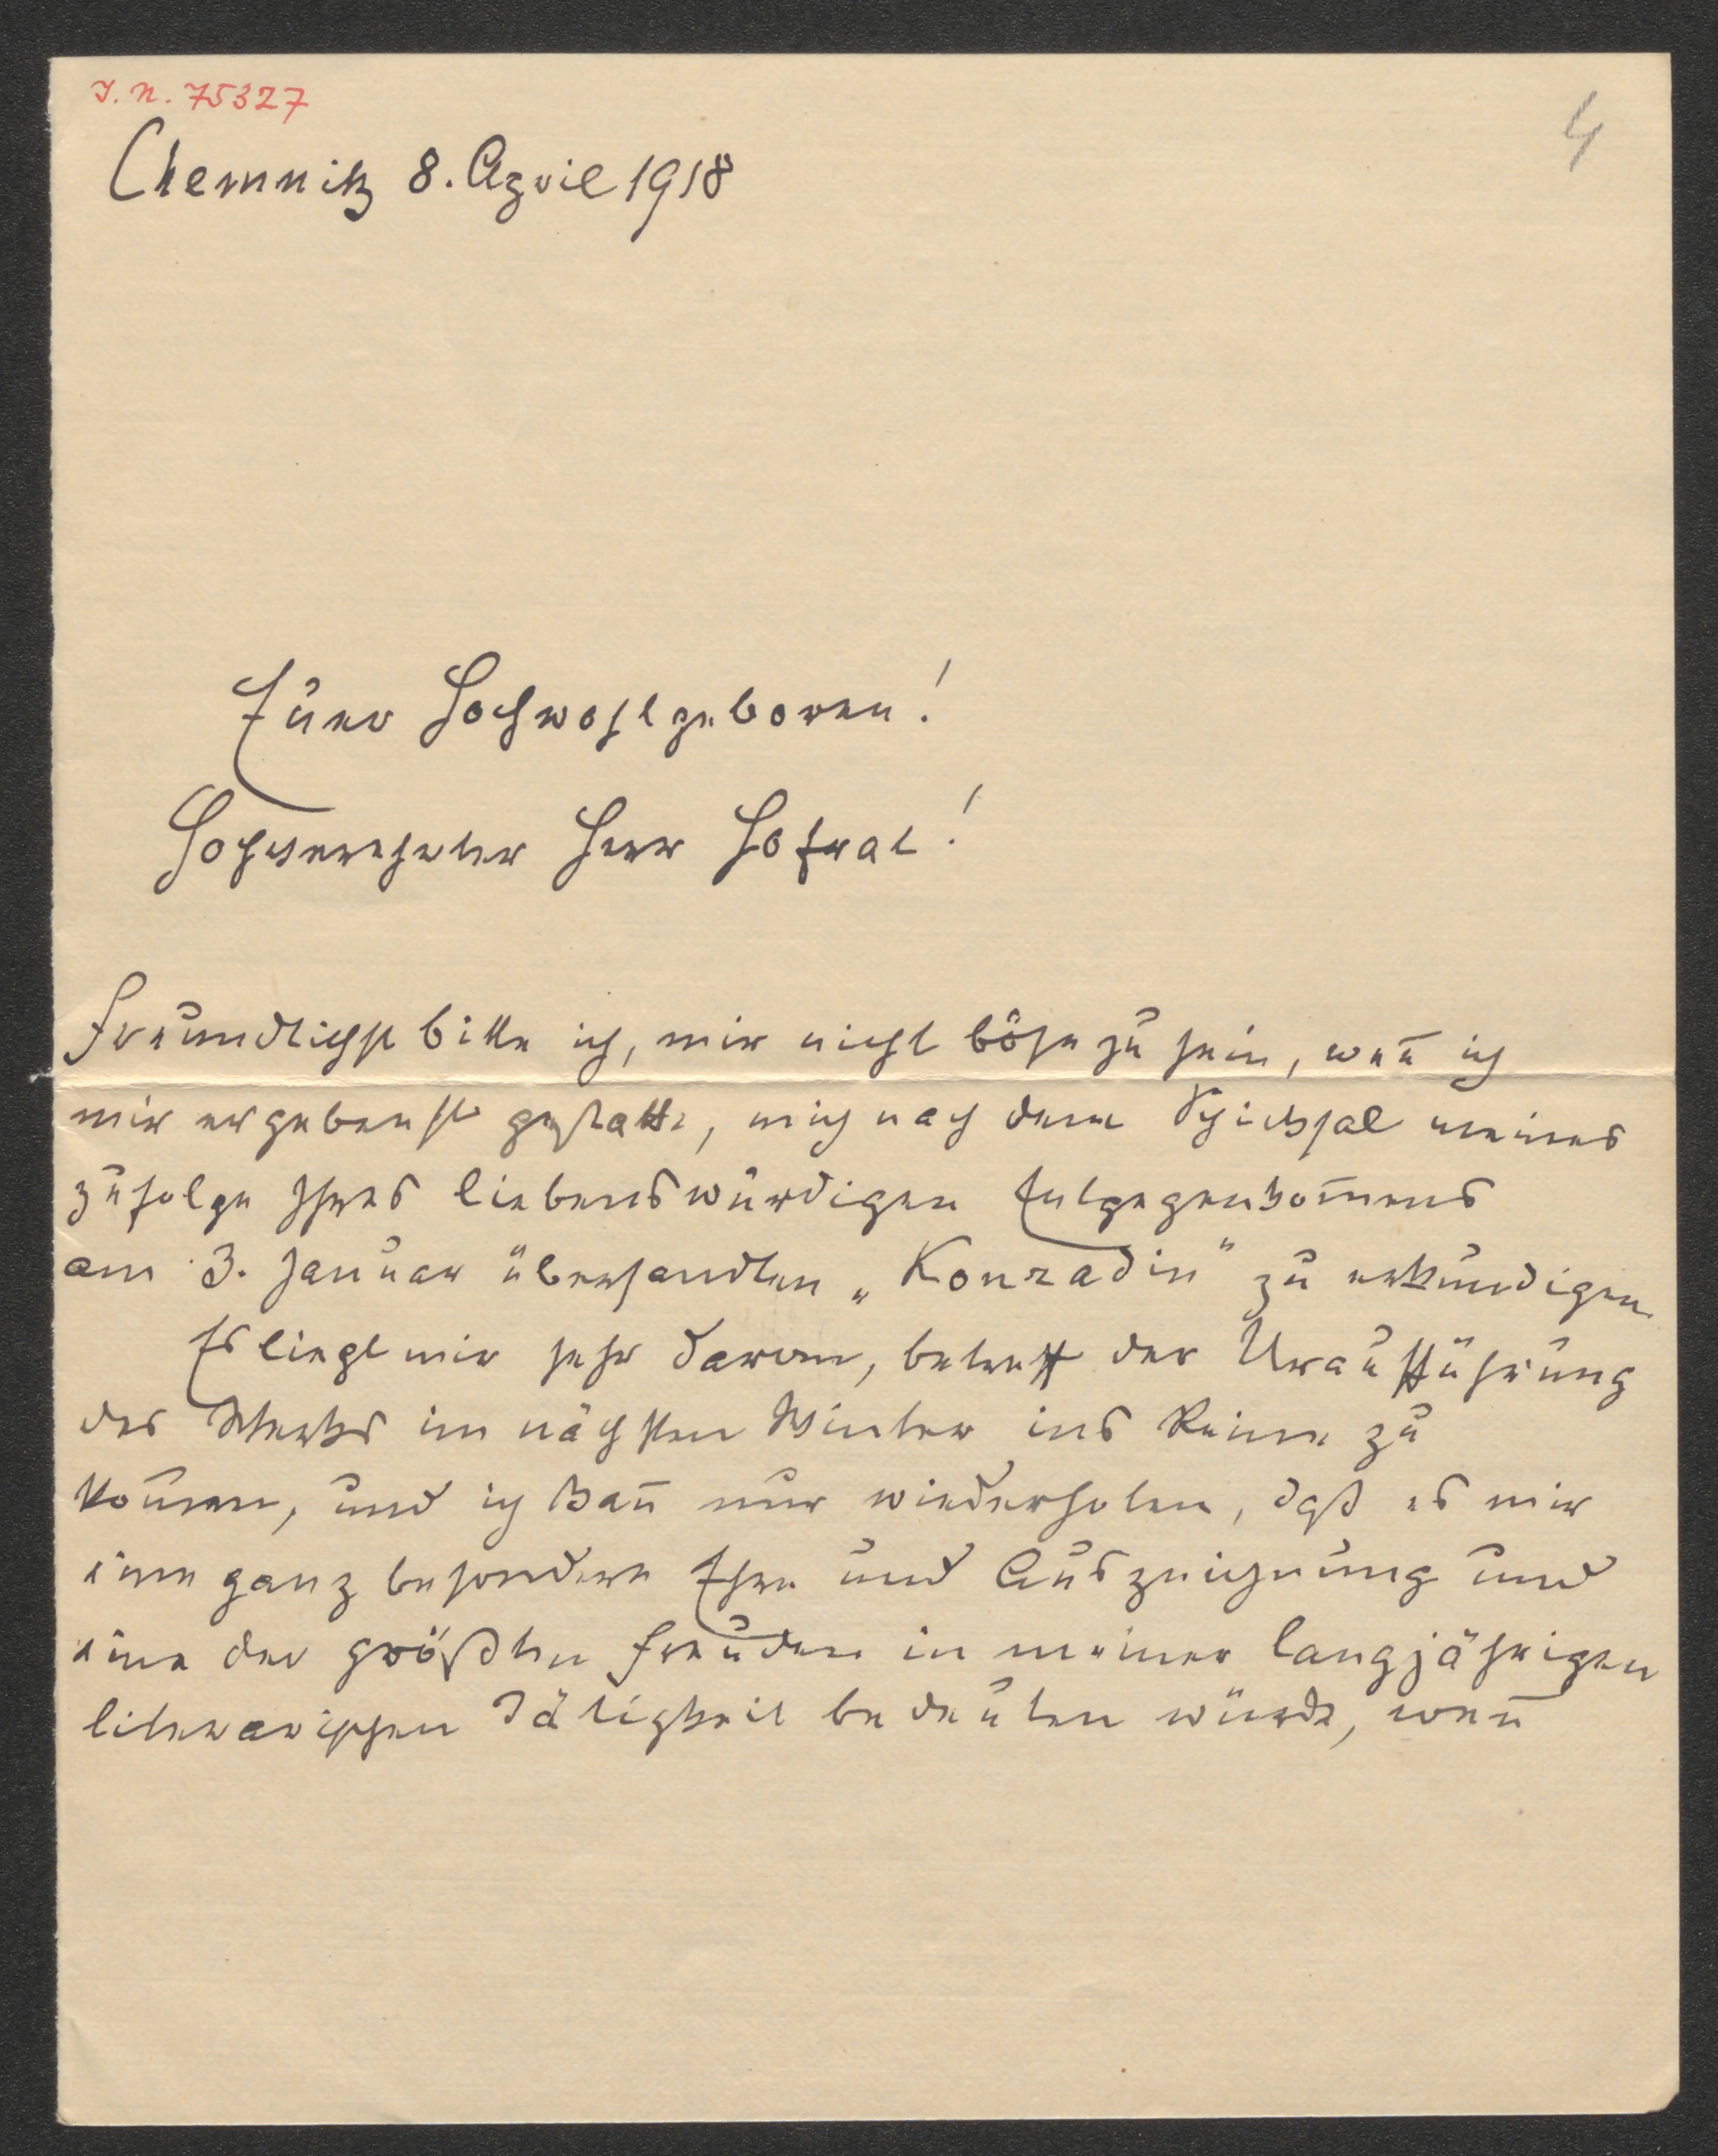 J. N. 75327
4
Chemnitz 8. April 1918
Euer Hochwohlgeboren!
Hochverehrter Herr Hofrat!
Freundlichst bitte ich, mir nicht böse zu sein, wen̄ ich
mir ergebenst gestatte, mich nach dem Schicksal meines
zufolge Ihres liebenswürdigen Entgegenkom̄ens
am 3. Januar übersandten „Konradin" zu erkundigen
Es liegt mir sehr daran, betreff der Uraufführung
des Werks im nächsten Winter ins Reine zu
kom̄en, und ich kan̄ nur wiederholen, daß es mir
eine ganz besondere Ehre und Auszeichnung und
eine der größten Freuden in meiner langjährigen
literarischen Tätigkeit bedeuten würde, wen̄